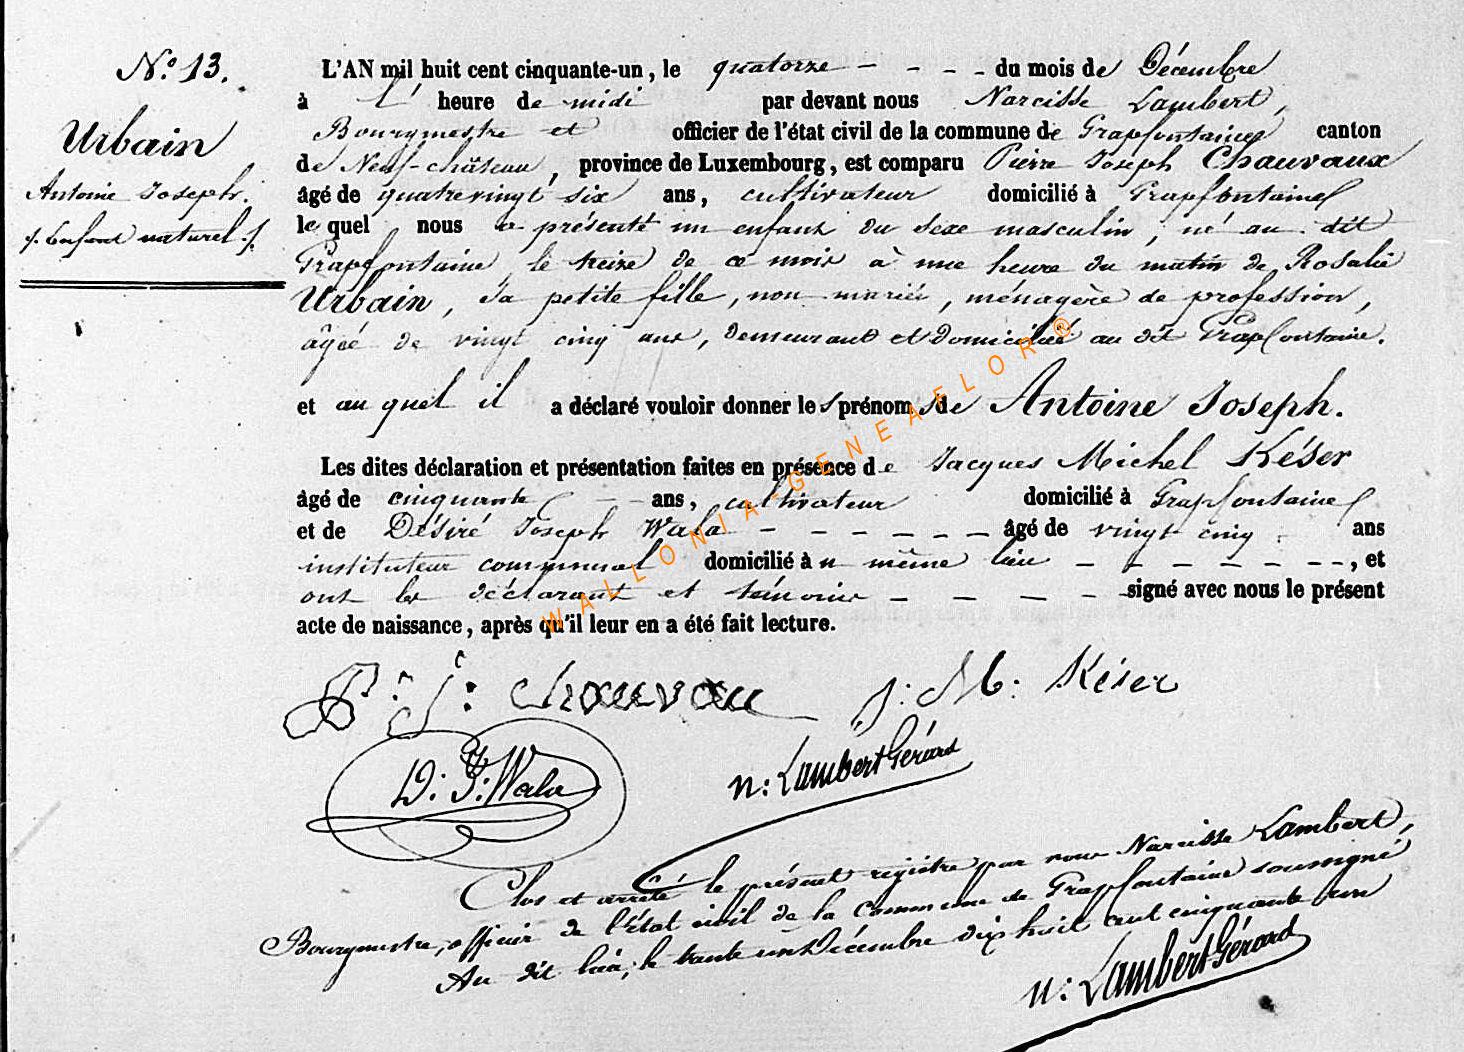 N.° 13.
Urbain
Antoine Joseph.
/. Enfant naturel ./.
L'AN mil huit cent cinquante-un, le quatorze - - - - du mois de Décembre
à L' heure de midi par devant nous Narcisse Lambert,
Bourgmestre et officier de l'état civil de la commune de Grapfontaine canton
de Neuf-château, province de Luxembourg, est comparu Pierre Joseph Chauvaux
âgé de quatrevingt six ans, cultivateur domicilié à Grapfontaine
le quel nous a présenté un enfant du sexe masculin, né au dit
Grapfontaine le treize de ce mois à une heure du matin de Rosalie
Urbain, sa petite fille, non mariée, ménagère de profession,
âgée de vingt cinq ans, demeurant et domiciliée au dit Grapfontaine.
et auquel il a déclaré vouloir donner les prénoms de Antoine Joseph.
Les dites déclaration et présentation faites en présence de Jacques Michel Késer
âgé de cinquante - - ans, cultivateur domicilié à Grapfontaine
et de Désiré Joseph Wala - - - - - - - âgé de vingt cinq - ans
instituteur communal domicilié à u même lieu - - - - - - - -, et
ont les déclarant et témoins - - - - - signé avec nous le présent
acte de naissance, après qu'il leur en a été fait lecture.
P: J: chauvau J: M: Késer
D: J: Wala n: Lambert Gérard
Clos et arrêté le présent registre par nous Narcisse Lambert,
Bourgmestre, officier de l'état civil de la commune de Grapfontaine soussigné
Au dit lieu, le trente un Décembre dix huit cent cinquante un
n: Lambert Gérard
WALLONIA-GENEAFLOR®